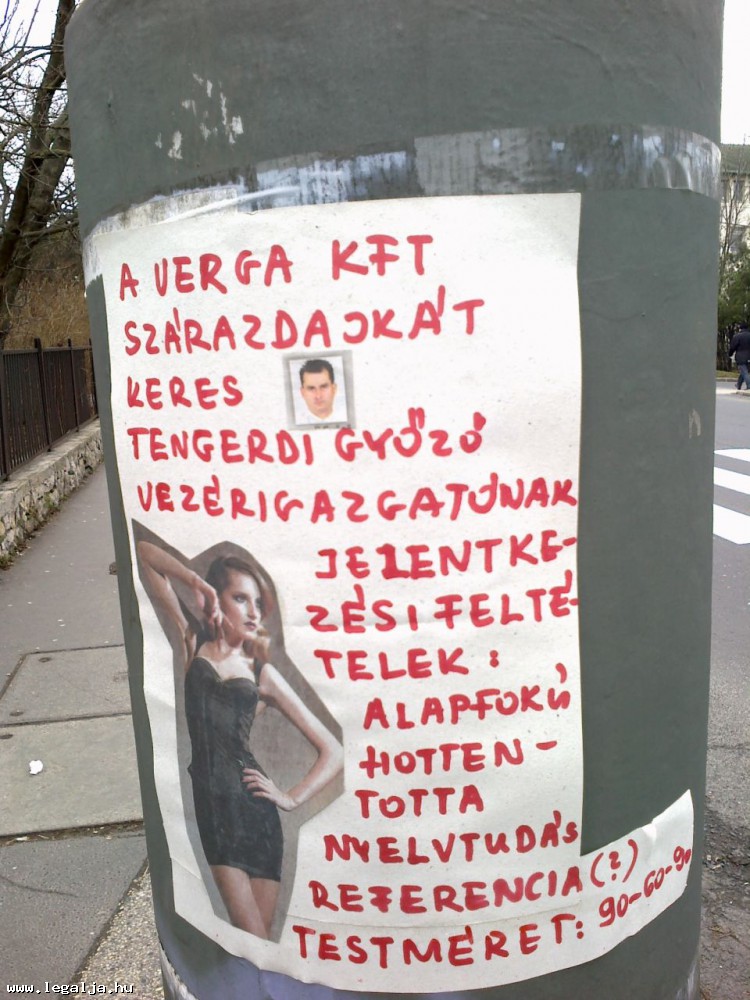 A VERGA KFT
SZÁRAZDAJKÁT
KERES
TENGERDI GYŐZŐ
VEZÉRIGAZGATÓNAK
JELENTKE-
ZÉSI FELTÉ-
TELEK:
ALAPFOKÚ
HOTTEN-
TOTTA
NYELVTUDÁS
REFERENCIA(?)
TESTMÉRET: 90-60-90
www.legalja.hu